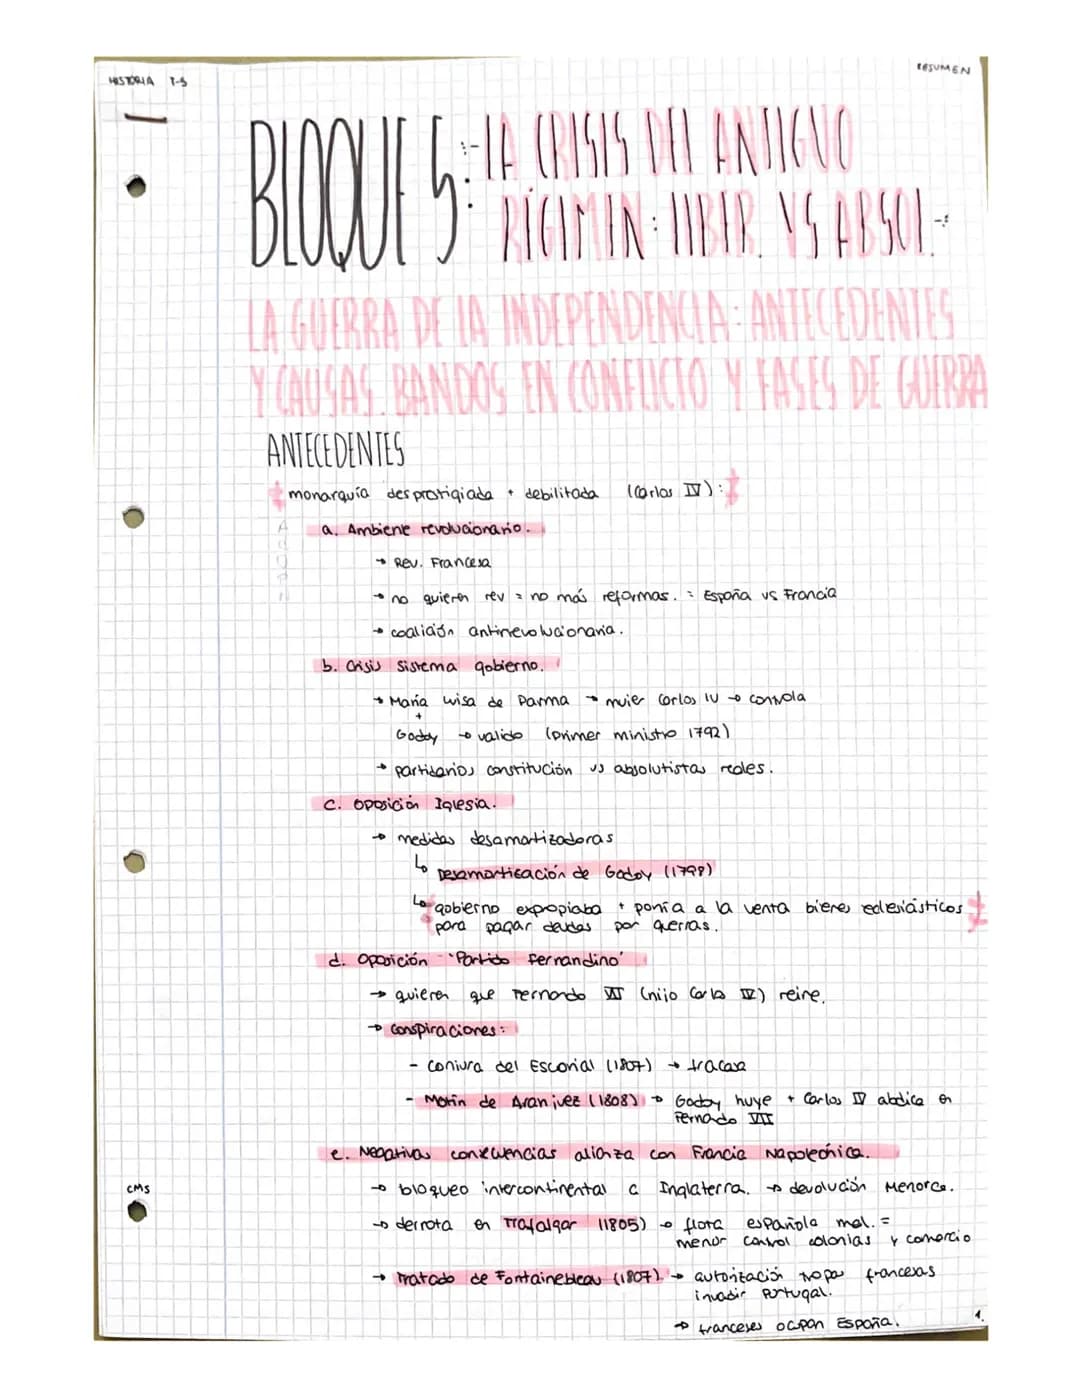 HISTORIA T-5
RESUMEN
BLOQUE 5: -LA CRISIS DEL ANTIGUO
RÉGIMEN: LIBER. VS ABSOL.-
LA GUERRA DE LA INDEPENDENCIA: ANTECEDENTES
Y CAUSAS. BANDOS EN CONFLICTO Y FASES DE GUERRA
ANTECEDENTES
monarquía desprotigiada + debilitada (Carlos IV):
a. Ambiente revolucionario.
→ Rev. Francesa
→ no quieren rev = no más reformas. = España vs Francia
→ coalición antirrevolucionaria.
b. Crisis sistema gobierno.
→ María Luisa de Parma → mujer Carlos IV → controla
+
Godoy → valido (primer ministro 1792)
→ partidarios constitución vs absolutistas reales.
c. Oposición Iglesia.
→ medidas desamortizadoras
↳ Desamortización de Godoy (1798)
↳ gobierno expropiaba + ponía a la venta bienes eclesiásticos
para pagar deudas por guerras.
d. Oposición "Partido fernandino"
→ quieren que Fernando VII (hijo Carlos IV) reine.
→ Conspiraciones:
- Conjura del Escorial (1807) → fracasa
- Motín de Aranjuez (1808) → Godoy huye + Carlos IV abdica en
Fernado VII
e. Negativas consecuencias alianza con Francia Napoleónica.
→ bloqueo intercontinental c Inglaterra. → devolución Menorca.
→ derrota en Trafalgar (1805) → flota española mal. =
menor control colonias y comercio
→ Tratado de Fontainebleau (1807) → autorización tropas francesas
invadir Portugal.
→ franceses ocupan España.
CMS
1.